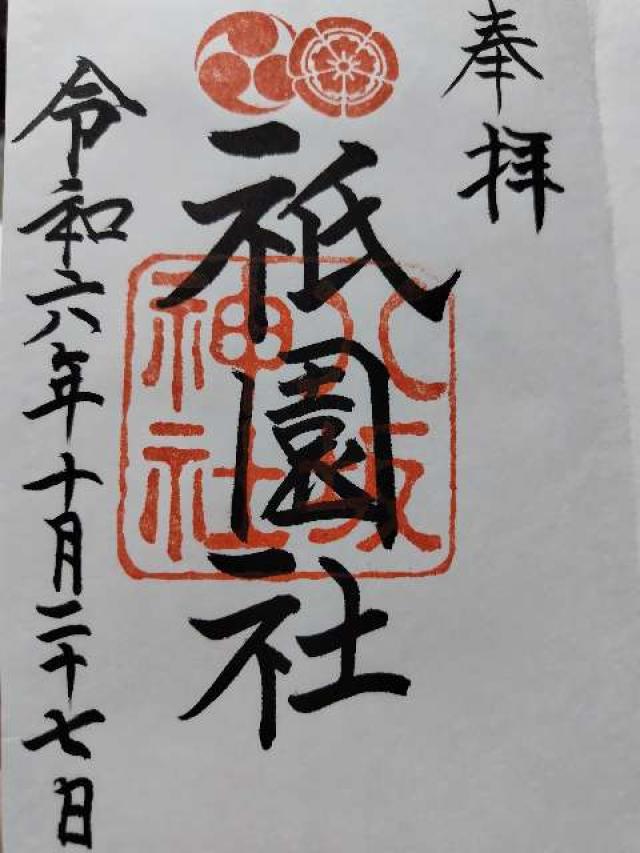 奉拝
祇園社
八坂
神社
令和六年十月二十七日